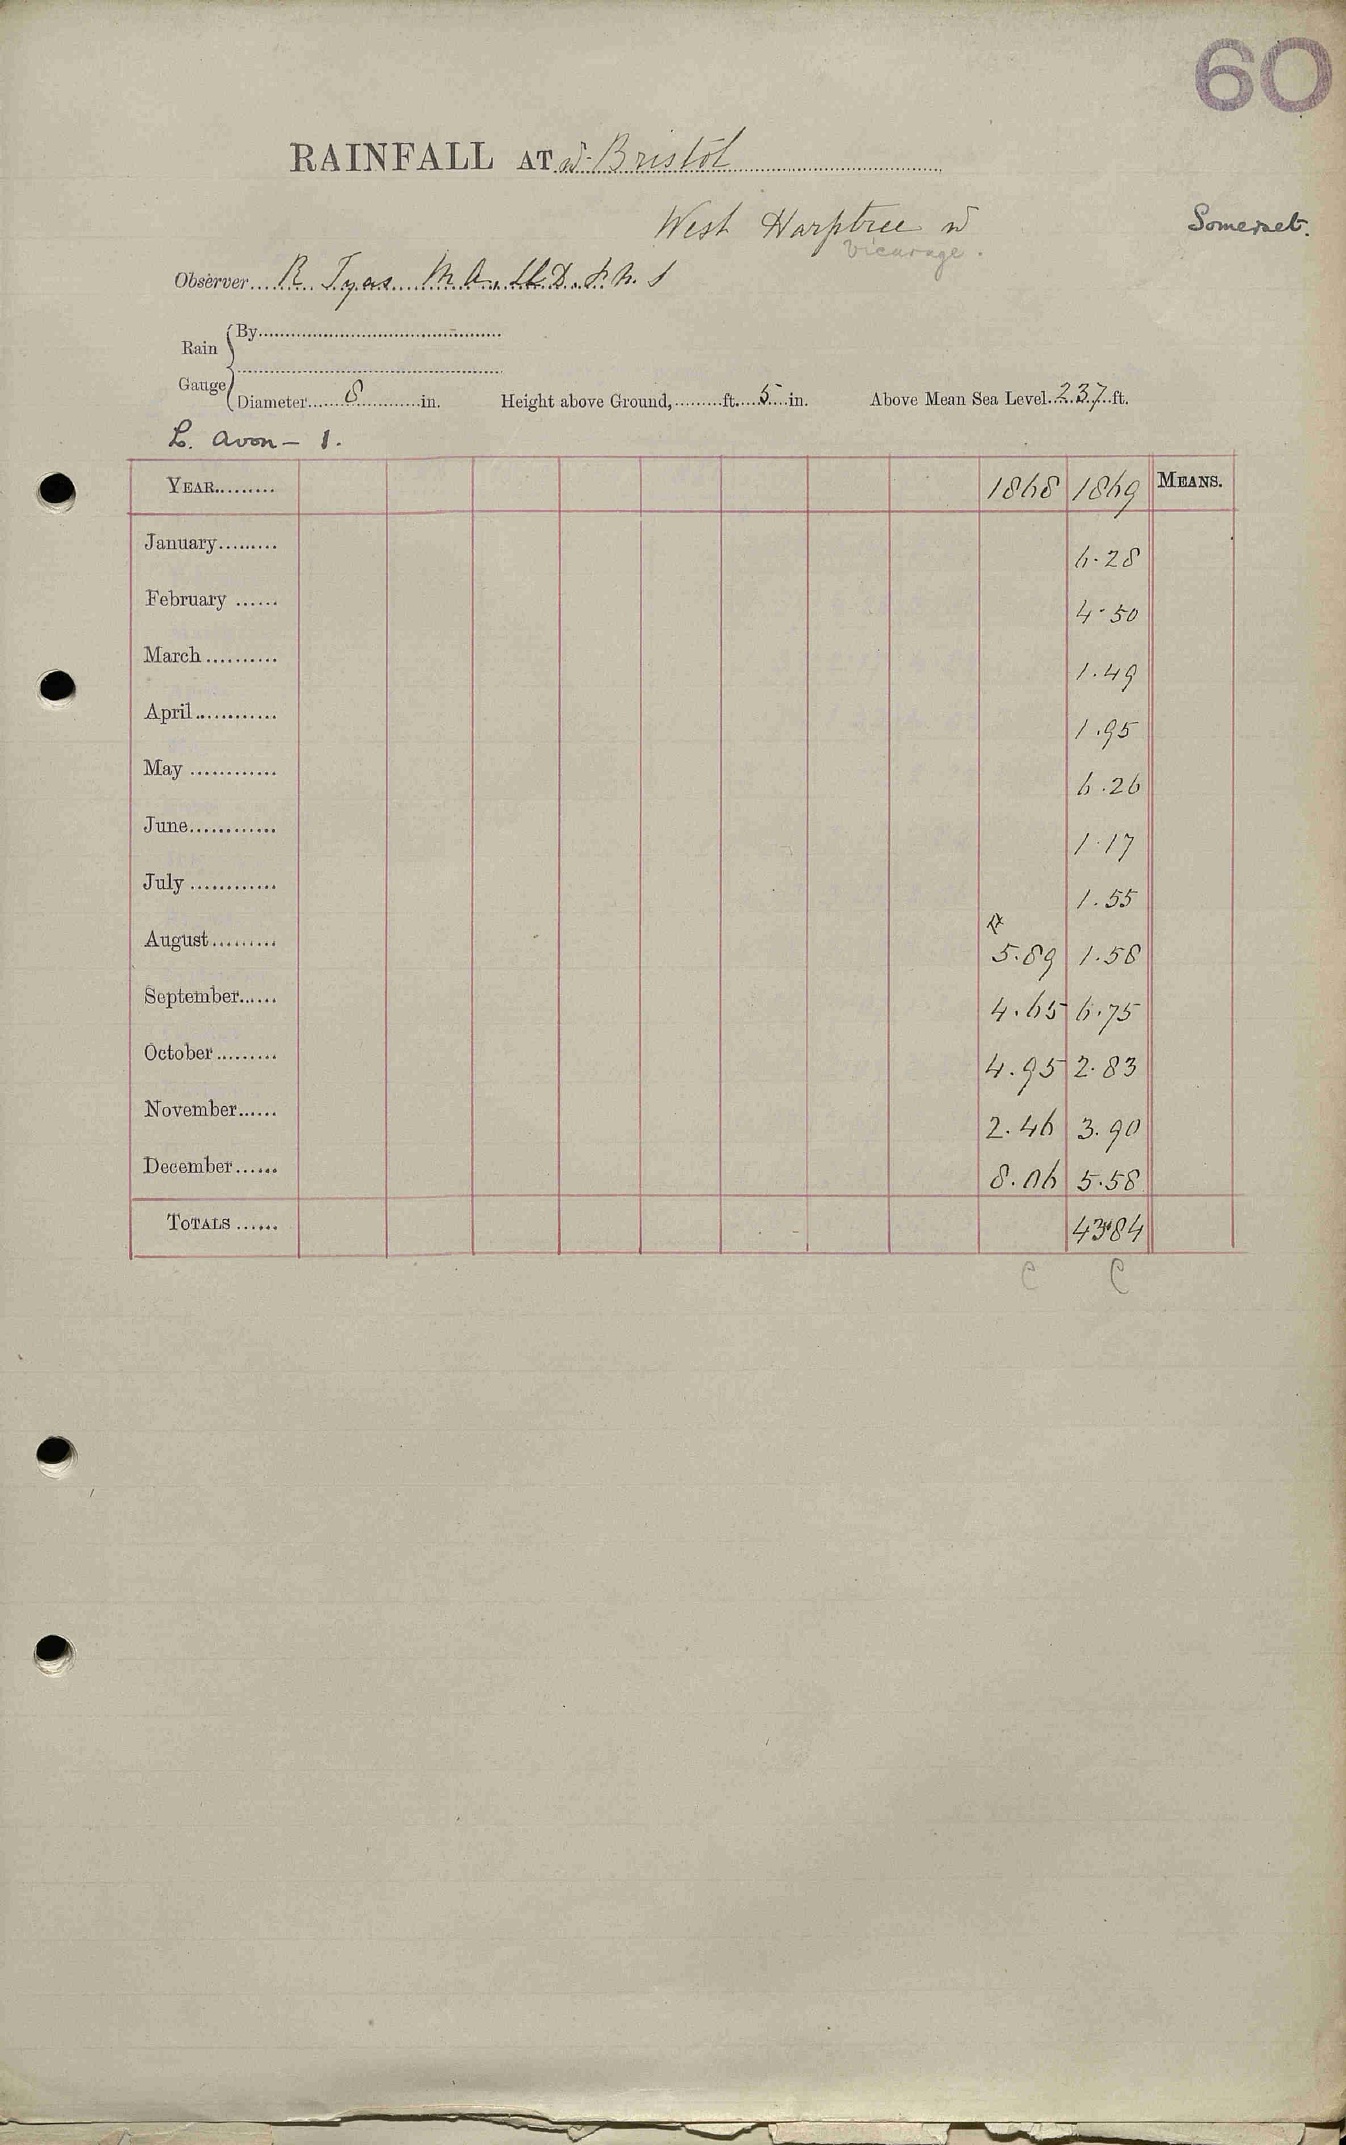 60
RAINFALL AT nr Bristol
West Harptree nr
Somerset.
Vicarage.
Observer R Tyas M.A., LL.D. F.R.S
Rain Gauge
By
Diameter 8 in. Height above Ground, ft. 5 in. Above Mean Sea Level 237 ft.
L. Avon – 1.
YEAR 1868 1869 MEANS.
January 6.28
February 4.50
March 1.49
April 1.95
May 6.26
June 1.17
July 1.55
August 5.89 1.58
September 4.65 6.75
October 4.95 2.83
November 2.46 3.90
December 8.06 5.58
TOTALS 43.84
C C